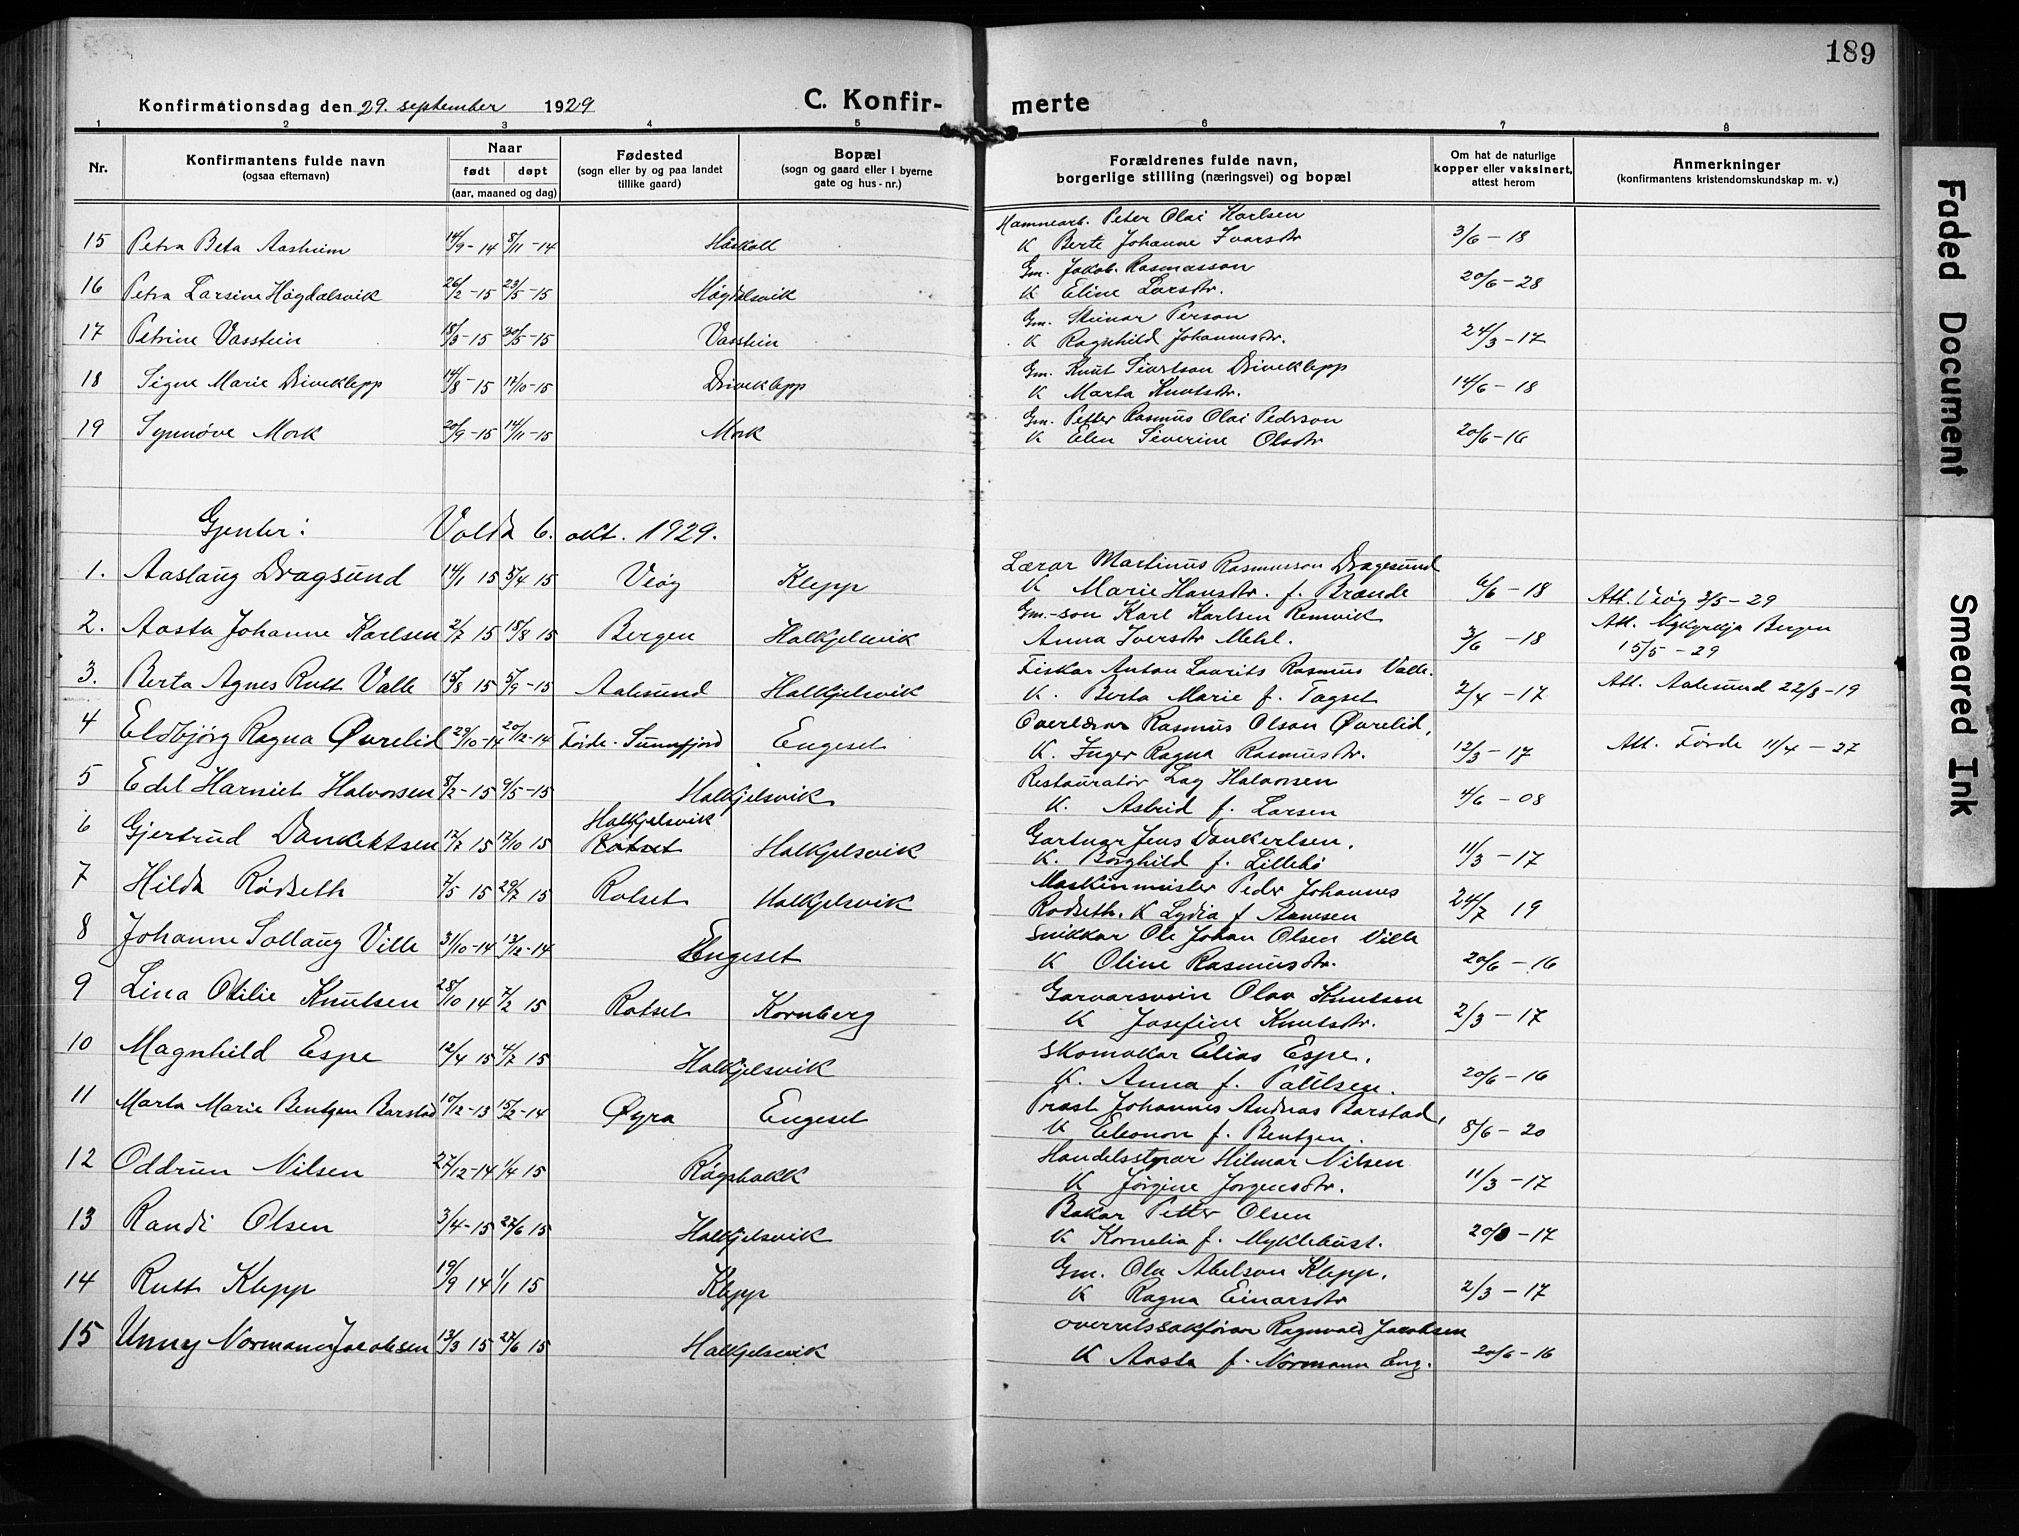 189
Konfirmationsdag den 29. september 1929
C. Konfir-
merte
1 2 3 4 5 6 7 8
Nr.
Konfirmantens fulde navn
(ogsaa efternavn)
Naar
født døpt
(aar, maaned og dag)
Fødested
(sogn eller by og paa landet
tillike gaard)
Bopæl
(sogn og gaard eller i byerne
gate og hus-nr.)
Forældrenes fulde navn,
borgerlige stilling (næringsvei) og bopæl
Om hat de naturlige
kopper eller vaksinert,
attest herom
Anmerkninger
(konfirmantens kristendomskundskap m. v.)
Hamnearb. Peter Olai Karlsen
15 Petra Beta Aasheim 14/9-14 8/11-14 K Berte Johanne Ivarsdtr 3/6-18
Gm. Jakob Rasmusson
16 Petra Larsine Høgdalsvik 26/2-15 23/5-15 Høgdalsvik K Eline Larsdtr. 20/6-28
Gm. Steinar Person
17 Petrine Vasstein 18/3-15 30/5-15 Vasstein K Ragnhild Johannesdtr. 24/3-17
Gm. Knut Sivertson Driveklepp
18 Signe Marie Driveklepp 14/8-15 17/10-15 Driveklepp K Marta Knutsdtr. 14/6-18
Gm. Petter Rasmus Olai Pederson
19 Synnøve Mork 20/9-15 14/11-15 Mork K Elen Severine Olsdtr 20/6-16
Gjenter: Volda 6. okt. 1929.
Lærar Martinus Rasmusson Dragesund
1. Aaslaug Dragsund 14/1 15 5/4 15 Veøy Klepp K Marie Hansdtr. f. Brænde 6/6-18 Att. Veøy 3/5-29
Gm.-son Karl Karlsen Remvik
2. Aasta Johanne Karlsen 2/7 15 15/8 15 Bergen Halkjelsvik Anna Iversdtr Mehl. 3/6-18 Att. Nykyrkja Bergen
15/5-29
Fiskar Anton Laurits Rasmus Valle.
3. Berta Agnes Rutt Valle 15/8 15 5/9-15 Aalesund Halkjelsvik K. Berta Marie f. Tagset 2/4-17 Att. Aalesund 22/8-19
Overlærar Rasmus Olson Øvrelid,
4 Eldbjørg Ragna Øvrelid 29/10-14 20/12-14 Førde-Sunnfjord Engeset K. Inger Ragna Rasmusdtr. 12/3-17 Att. Førde 11/4-27
Restauratør Lag Halvorsen
5 Edel Harriet Halvorsen 8/2-15 9/5-15 Halkjelsvik K. Astrid f. Larsen 4/6-08
Halkjelsvik
Gartnar Jens Dankertsen.
6 Gjertrud Dankertsen 12/7 15 17/10 15 Rotset Halkjelsvik K. Borghild f. Lillebø 11/3-17
Maskinmeister Peder Johannes
7 Hilda Rødseth 7/5 15 29/7 15 Rotset Halkjelsvik Rødseth. K Lydia f Aamsen 24/7 19
Snikkar Ole Johan Olsen Ville
8 Johanne Sollaug Ville 31/10-14 13/12-14 Engeset K Oline Rasmusdtr. 20/6-16
Garvarsvein Olav Knutsen
9 Lina Otilie Knutsen 28/10 14 7/2 15 Rotset Kornberg K Josefine Knutsdtr. 2/3-17
Skomakar Elias Espe.
10 Magnhild Espe 12/4 15 4/7 15 Halkjelsvik K. Anna f. Paulsen. 20/6-16
Prost Johannes Andreas Barstad,
11 Marta Marie Bentzen Barstad 10/12-13 15/2-14 Øyra Engeset K Eleonore f. Bentzen. 8/6-20
Handelsstyrar Hilmar Nilsen
12 Oddrun Nilsen 27/12-14 1/4 15 Røysbakk K Jørgine Jørgensdtr. 11/3-17
Bakar Petter Olsen
13 Randi Olsen 3/4-15 27/6 15 Halkjelsvik K Kornelia f. Myklebust. 20/3-17
Gm. Ole Abelson Klepp.
14 Rutt Klepp 19/9 14 1/1 15 Klepp K Ragna Einarsdtr 2/3-17
Overretssakførar Ragnvald Jacobsen
15 Unny Normann Jacobsen 13/3 15 27/6 15 Halkjelsvik K Aasta f. Normann Eng. 20/6-16
Faded Document
Smeared Ink